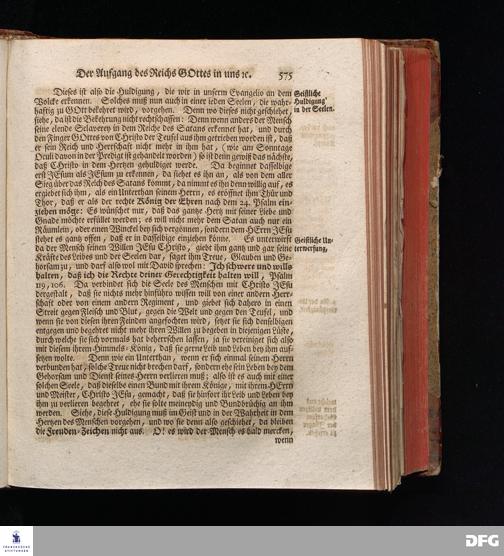 Der Aufgang des Reichs GOttes in uns ꝛc. 575
Dieses ist also die Huldigung, die wir in unserm Evangelio an dem
Volcke erkennen. Solches muß nun auch in einer ieden Seelen, die wahr-
hafftig zu GOtt bekehret wird, vorgehen. Denn wo dieses nicht geschiehet,
siehe, da ist die Bekehrung nicht rechtschaffen: Denn wenn anders der Mensch
seine elende Sclaverey in dem Reiche des Satans erkennet hat, und durch
den Finger GOttes von Christo der Teufel aus ihm getrieben worden ist, daß
er sein Reich und Herrschaft nicht mehr in ihm hat, (wie am Sonntage
Oculi davon in der Predigt ist gehandelt worden) so ist denn gewiß das nächste,
daß Christo in dem Hertzen gehuldiget werde. Da beginnet dasselbige
erst JEsum als JEsum zu erkennen, da siehet es ihn an, als von dem aller
Sieg über das Reich des Satans kommt, da nimmt es ihn denn willig auf, es
ergiebet sich ihm, als ein Unterthan seinem Herrn, es eröffnet ihm Thür und
Thor, daß er als der rechte König der Ehren nach dem 24. Psalm ein-
ziehen möge: Es wünschet nur, daß das gantze Hertz mit seiner Liebe und
Gnade möchte erfüllet werden; es will nicht mehr dem Satan auch nur ein
Räumlein, oder einen Winckel bey sich vergönnen, sondern dem HErrn JEsu
stehet es gantz offen, daß er in dasselbige einziehen könne. Es unterwirft
da der Mensch seinen Willen JEsu Christo, giebt ihm gantz und gar seine
Kräfte des Leibes und der Seelen dar, saget ihm Treue, Glauben und Ge-
horsam zu, und darf also wol mit David sprechen: Ich schwere und wills
halten, daß ich die Rechte deiner Gerechtigkeit halten will, Psalm
119, 106. Da verbindet sich die Seele des Menschen mit Christo JEsu
dergestalt, daß sie nichts mehr hinführo wissen will von einer andern Herr-
schaft oder von einem andern Regiment, und giebet sich dahero in einen
Streit gegen Fleisch und Blut, gegen die Welt und gegen den Teufel, und
wenn sie von diesen ihren Feinden angefochten wird, setzet sie sich denselbigen
entgegen und begehret nicht mehr ihren Willen zu begeben in diejenigen Lüste,
durch welche sie sich vormals hat beherrschen lassen, ja sie vereiniget sich also
mit diesem ihrem Himmels-König, daß sie gerne Leib und Leben bey ihm auf-
setzen wolte. Denn wie ein Unterthan, wenn er sich einmal seinem Herrn
verbunden hat, solche Treue nicht brechen darf, sondern ehe sein Leben bey dem
Gehorsam und Dienst seines Herrn verlieren muß; also ist es auch mit einer
solchen Seele, daß dieselbe einen Bund mit ihrem Könige, mit ihrem HErrn
und Meister, Christo JEsu, gemacht, daß sie hinfort ihr Leib und Leben bey
ihm zu verlieren begehret, ehe sie solte meineydig und Bundbrüchig an ihm
werden. Siehe, diese Huldigung muß im Geist und in der Wahrheit in dem
Hertzen des Menschen vorgehen, und wo sie denn also geschiehet, da bleiben
die Freuden-Zeichen nicht aus. O! es wird der Mensch es bald mercken,
wenn
Geistliche
Huldigung
in der Seelen.
Geistliche Un-
terwerfung,
FRANCKESCHE
STIFTUNGEN
DFG